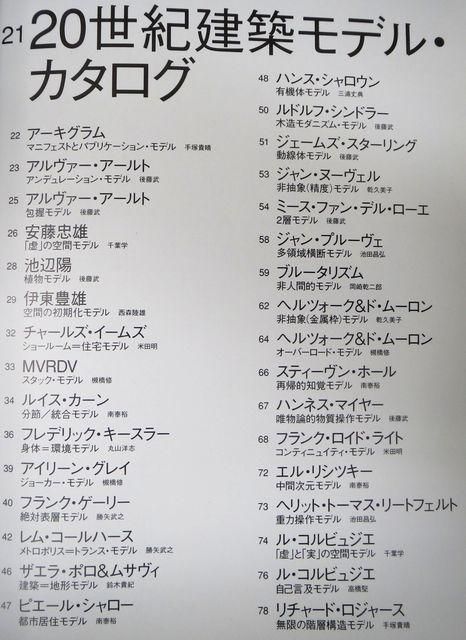 21 20世紀建築モデル・
カタログ
22 アーキグラム
マニフェストとパブリケーション・モデル 手塚貴晴
23 アルヴァー・アールト
アンデュレーション・モデル 後藤武
25 アルヴァー・アールト
包握モデル 後藤武
26 安藤忠雄
「虚」の空間モデル 千葉学
28 池辺陽
植物モデル 後藤武
29 伊東豊雄
空間の初期化モデル 西森陸雄
32 チャールズ・イームズ
ショールーム=住宅モデル 米田明
33 MVRDV
スタック・モデル 槻橋修
34 ルイス・カーン
分節/統合モデル 南泰裕
36 フレデリック・キースラー
身体=環境モデル 丸山洋志
39 アイリーン・グレイ
ジョーカー・モデル 槻橋修
40 フランク・ゲーリー
絶対表層モデル 勝矢武之
42 レム・コールハース
メトロポリス=トランス・モデル 勝矢武之
46 ザエラ・ポロ&ムサヴィ
建築=地形モデル 鈴木貴紀
47 ピエール・シャロー
都市居住モデル 南泰裕
48 ハンス・シャロウン
有機体モデル 三浦丈典
50 ルドルフ・シンドラー
木造モダニズム・モデル 後藤武
51 ジェームズ・スターリング
動線体モデル 後藤武
53 ジャン・ヌーヴェル
非抽象(精度)モデル 乾久美子
54 ミース・ファン・デル・ローエ
2層モデル 後藤武
58 ジャン・プルーヴェ
多領域横断モデル 池田昌弘
59 ブルータリズム
非人間的モデル 岡崎乾二郎
62 ヘルツォーク&ド・ムーロン
非抽象(金属枠)モデル 乾久美子
64 ヘルツォーク&ド・ムーロン
オーバーロード・モデル 槻橋修
66 スティーヴン・ホール
再帰的知覚モデル 南泰裕
67 ハンネス・マイヤー
唯物論的物質操作モデル 後藤武
68 フランク・ロイド・ライト
コンティニュイティ・モデル 米田明
72 エル・リシツキー
中間次元モデル 南泰裕
73 ヘリット・トーマス・リートフェルト
重力操作モデル 池田昌弘
74 ル・コルビュジエ
「虚」と「実」の空間モデル 千葉学
76 ル・コルビュジエ
自己言及モデル 高橋堅
78 リチャード・ロジャース
無限の階層構造モデル 手塚貴晴